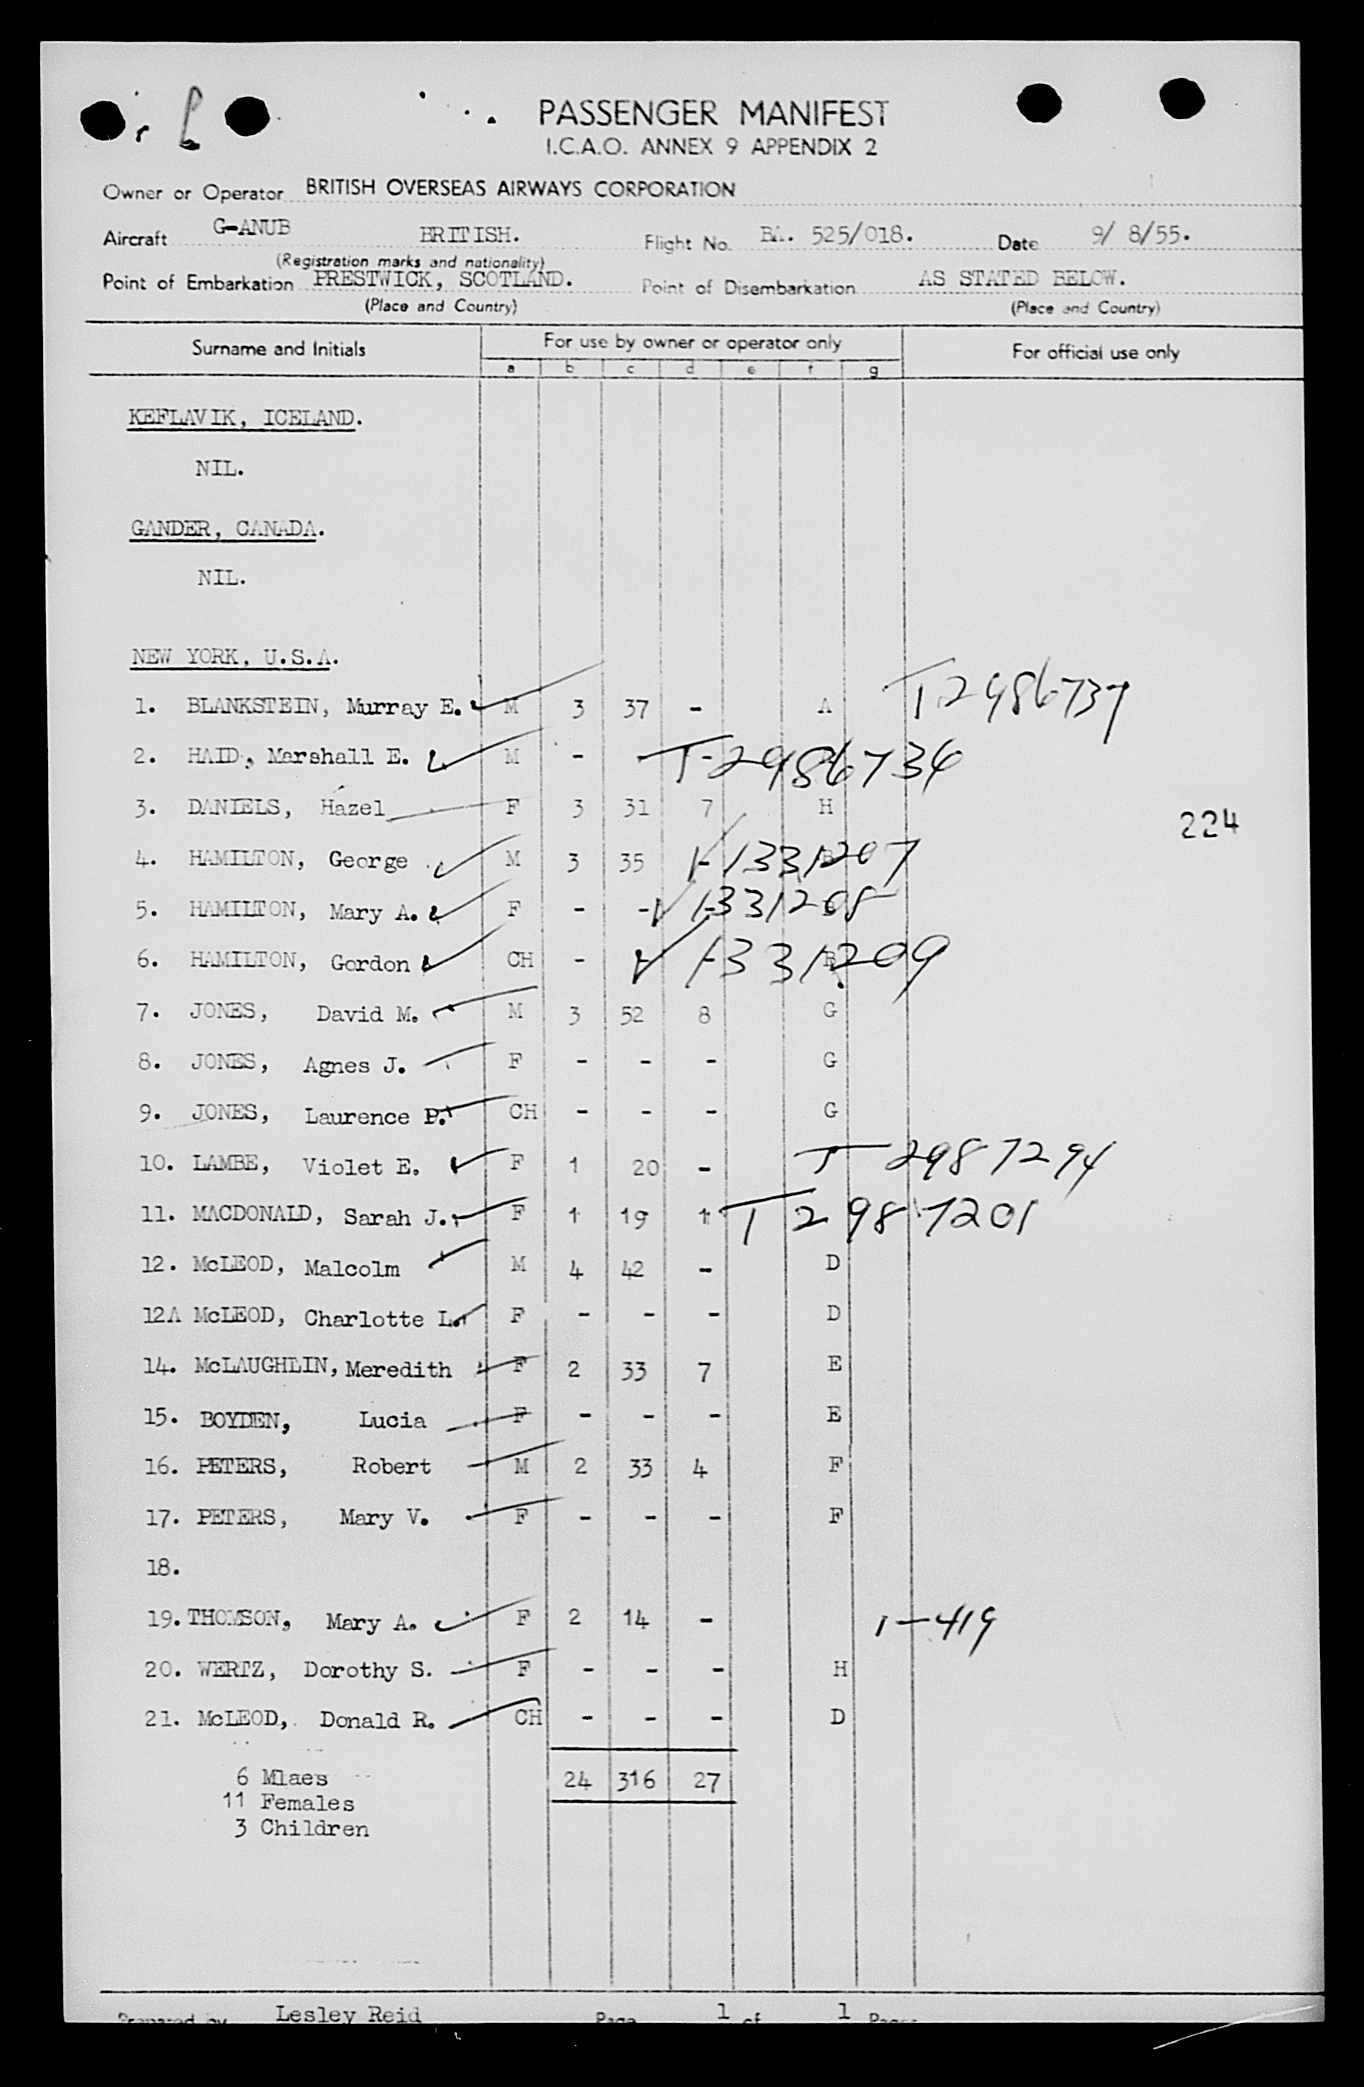 PASSENGER MANIFEST
I.C.A.O. ANNEX 9 APPENDIX 2
Owner or Operator BRITISH OVERSEAS AIRWAYS CORPORATION
Aircraft G-ANUB BRITISH. Flight No. BA. 525/018. Date 9/ 8/55.
(Registration marks and nationality)
Point of Embarkation PRESTWICK, SCOTLAND. Point of Disembarkation AS STATED BELOW.
(Place and Country) (Place and Country)
Surname and Initials For use by owner or operator only For official use only
a b c d e f g
KEFLAVIK, ICELAND.
NIL.
GANDER, CANADA.
NIL.
NEW YORK, U.S.A.
1. BLANKSTEIN, Murray E. M 3 37 - A T2986737
2. HAID, Marshall E. M - T-2986736
3. DANIELS, Hazel F 3 31 7 H
224
4. HAMILTON, George M 3 35 - B 1331207
5. HAMILTON, Mary A. F - - - 1331208
6. HAMILTON, Gordon CH - - - B 1331209
7. JONES, David M. M 3 52 8 G
8. JONES, Agnes J. F - - - G
9. JONES, Laurence P. CH - - - G
10. LAMBE, Violet E. F 1 20 - T 2987294
11. MACDONALD, Sarah J. F 1 19 1 T 2987201
12. McLEOD, Malcolm M 4 42 - D
12A McLEOD, Charlotte L. F - - - D
14. McLAUGHLIN, Meredith F 2 33 7 E
15. BOYDEN, Lucia F - - - E
16. PETERS, Robert M 2 33 4 F
17. PETERS, Mary V. F - - - F
18.
19. THOMSON, Mary A. F 2 14 - 1-419
20. WERTZ, Dorothy S. F - - - H
21. McLEOD, Donald R. CH - - - D
6 Mlaes 24 316 27
11 Females
3 Children
Prepared by Lesley Reid Page 1 of 1 Pages